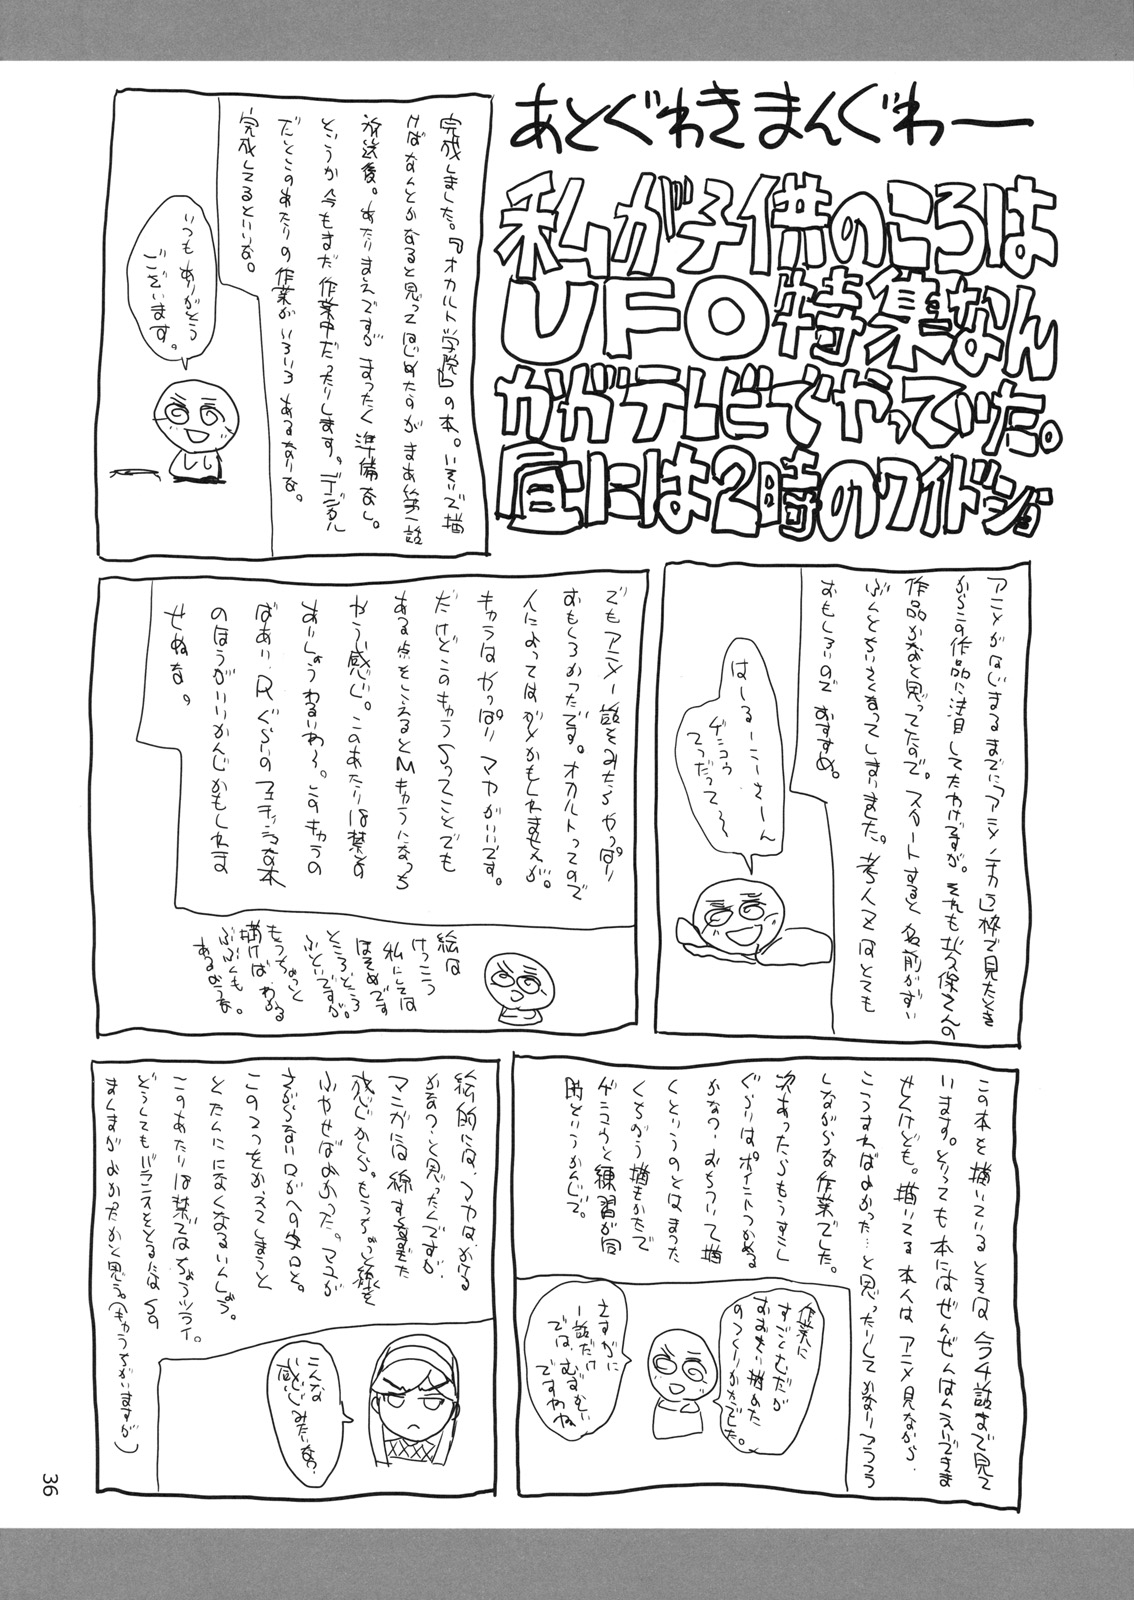 あとぐわきまんぐわー
私が子供のころは
UFO特集なん
かがテレビでやっていた。
昼には2時のワイドショ
完成しました。『オカルト学院』の本。いそいで描
けばなんとかなると思ってはじめたのがまあ第一話
放送後。あたりまえですがまったく準備なし。
というか今もまだ作業中だったりします。デジタル
だとこのあたりの作業がいろいろあるなりな。
完成してるといいな。
いつもありがとう
ございます。
アニメがはじまるまでに「アニメノチカラ」枠で見たとき
からこの作品に注目してたわけですが。それも
作品かなあと思ってたので。スタートすると名前がずい
ぶんとちいさくなってしまいました。
おもしろいのでおすすめ。
はーるーこーさーん
ゲンコウ
てつだって〜
でもアニメ一話をみたらやっぱり
おもしろかったです。オカルトってので
人によってはダメかもしれませんが。
キャラはやっぱりマヤがいいです。
だけどこのキャラSってことでも
ある点をこえるとMキャラになっち
ゃう感じ。このあたりは禁その
あいしょうわるいわ〜。このキャラの
ばあい、Rぐらいのフェチッシュな本
のほうがいいかんじかもしれま
せぬな。
絵は
けっこう
私にしては
ほそめです
ところどころ
ふといですが。
もうちょっと
描けばわかる
ぶぶんも
あるような。
この本を描いているときは今4話まで見て
います。とっても本にはぜんぜんはんえいできま
せんけども。描いてる本人はアニメ見ながら、
こうすればよかった…と思ったりしてかなりフラフラ
しながらな作業でした。
次あったらもうすこし
ぐらいはポイントつかめる
かなっ。おちついて描
くというのとはまった
くちがう描きかたで
ゲンコウと練習が同
時というかんじで。
作業に
すごくむだが
おおきい描めた
のつくりかたでした。
さすがに
一話だけ
では、むずかしい
ですわね
絵的には、マヤは、かける
かなっ、と思ったんですが、
マンガには線すくなすぎた
感じかしら。もうちょっと線を
ふやせばよかった。マユが
さがらない、口がへの字口と。
この2つをかえてしまうと
とたんにになくなるいんしょう。
このあたりは禁ではちょうツライ。
どうしてもバランスをとるにはSの
まんまがよかったかと思う。(もうちがいますが)
こんな
感じみたいな?
36